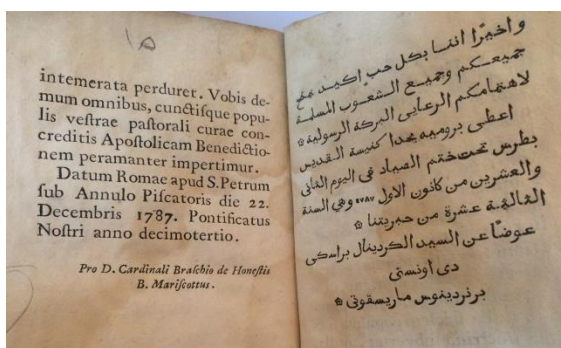 ١٥
intemerata perduret. Vobis de-
mum omnibus, cunctisque popu-
lis vestrae pastorali curae con-
creditis Apostolicam Benedictio-
nem peramanter impertimur.
Datum Romae apud S. Petrum
sub Annulo Piscatoris die 22.
Decembris 1787. Pontificatus
Nostri anno decimotertio.
Pro D. Cardinali Braschio de Honestis
B. Mariscottus.
واخيرًا اننا بكل حب اكيد نمنح
جميعكم وجميع الشعوب المسلمة
لاهتمامكم الرعايى البركة الرسولية ۞
اعطى برومية بحدا كنيسة القديس
بطرس تحت ختم الصياد فى اليوم الثانى
والعشرين من كانون الاول ١٧٨٧ وهى السنة
الثالثة عشرة من حبريتنا ۞
عوضًا عن السيد الكردينال براسكى
دى اونستى
برنردينوس ماريسقوتى ۞